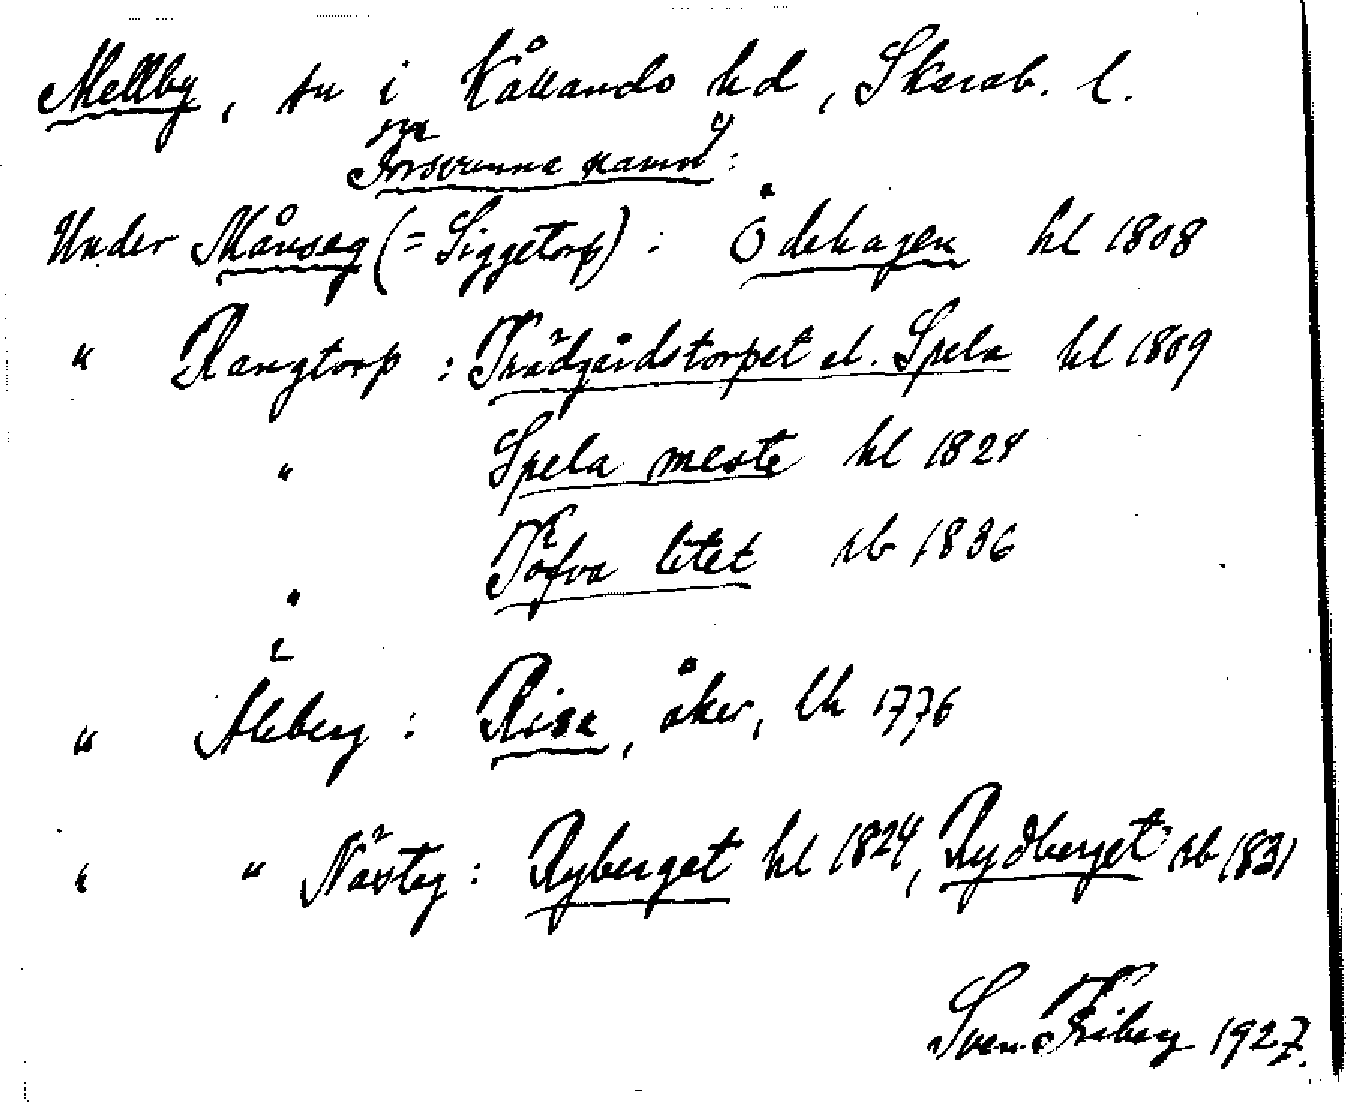 Mellby, sn i Kållands hd, Skarab. l.
Försvunna namn:
Under Månseg (= Siggetorp) : Ödehagen hl 1808
" Rangtorp : Trädgårdstorpet el. Spela hl 1809
" Spela meste hl 1824
" Töfva litet rb 1836
" Aleberg : Risa, åker, lh 1776
" " Näxteg : Ryberget hl 1824, Rydberget rb 1831
Sven Friberg 1927.